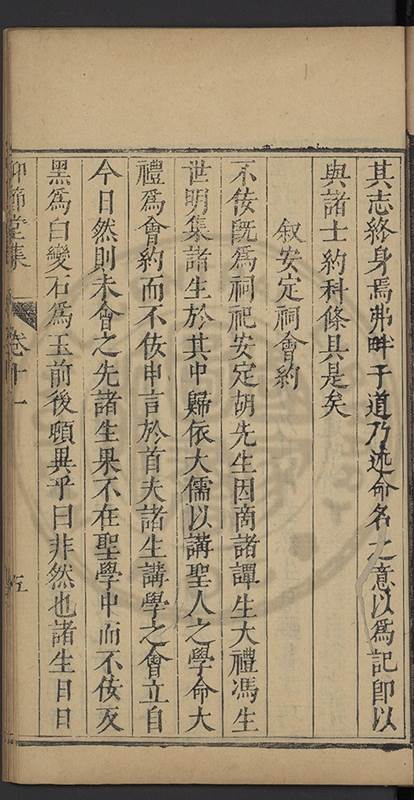 其志終身焉弗畔于道乃述命名之意以為記即以
與諸士約科條具是矣
叙安定祠會約
不佞既為祠祀安定胡先生因商諸譚生大禮馮生
世明集諸生於其中歸依大儒以講聖人之學命大
禮為會約而不佞申言於首夫諸生講學之會立自
今日然則未會之先諸生果不在聖學中而不佞反
黑為白變石為玉前後頓異乎曰非然也諸生日日
仰節堂集 卷十一 五